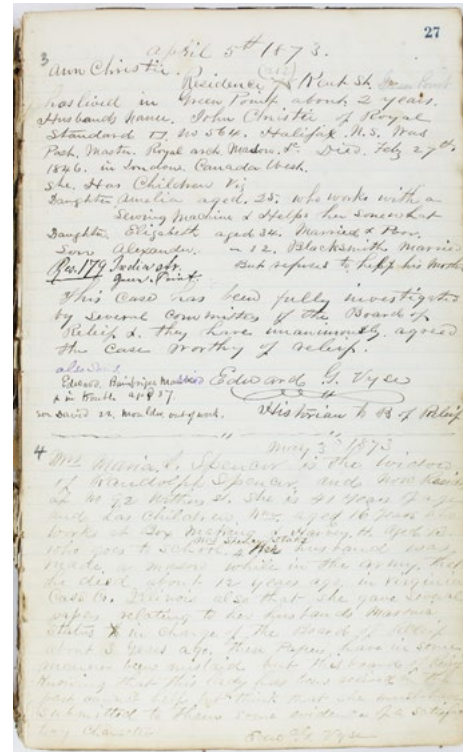 27
April 5th 1873.
3
Ann Christie.
Residence 75 Kent St. Green Point
has lived in Green Point about 2 years.
Husbands name. John Christie of Royal
Standard No 564. Halifax. N.S. Was
Past. Master. Royal arch. Mason &c. Died. Feby 27th
1846. in London Canada West.
She. Has Children Viz
Daughter Amelia aged. 25. who works with a
Sewing Machine & Helps her somewhat
Daughter Elizabeth aged 34. Married & Poor.
Son Alexander. Blacksmith Married
Res. 179 India str. But refuses to help his Mother
Green Point.
This Case has been fully investigated
by several Committees of the Board of
Relief & they have unanimously agreed
the Case worthy of relief.
also Sons
Edward
& in trouble aged 37
Edward G. Vyse
son David 22. Moulder out of work.
Historian to B of Relief
May 3d 1873
4
Mrs Maria S. Spencer is the widow
of Randolph Spencer, and now resides
at No 92 Withers St. She is 41 Years of age
and has Children aged 16 Years who
works at Box Making & Harvey H. aged 12
who goes to School. Her husband was
made a mason while in the army, that
he died about 12 years ago in Virginia
Case Co. Illinois also that she gave several
papers relating to her husbands Masonic
Status in charge of the Board of Relief
about 3 Years ago. These Papers have in some
manner been mislaid but this board of
that this Lady has
past think that she
submitted to them some evidence of a
Character
Edwd G. Vyse